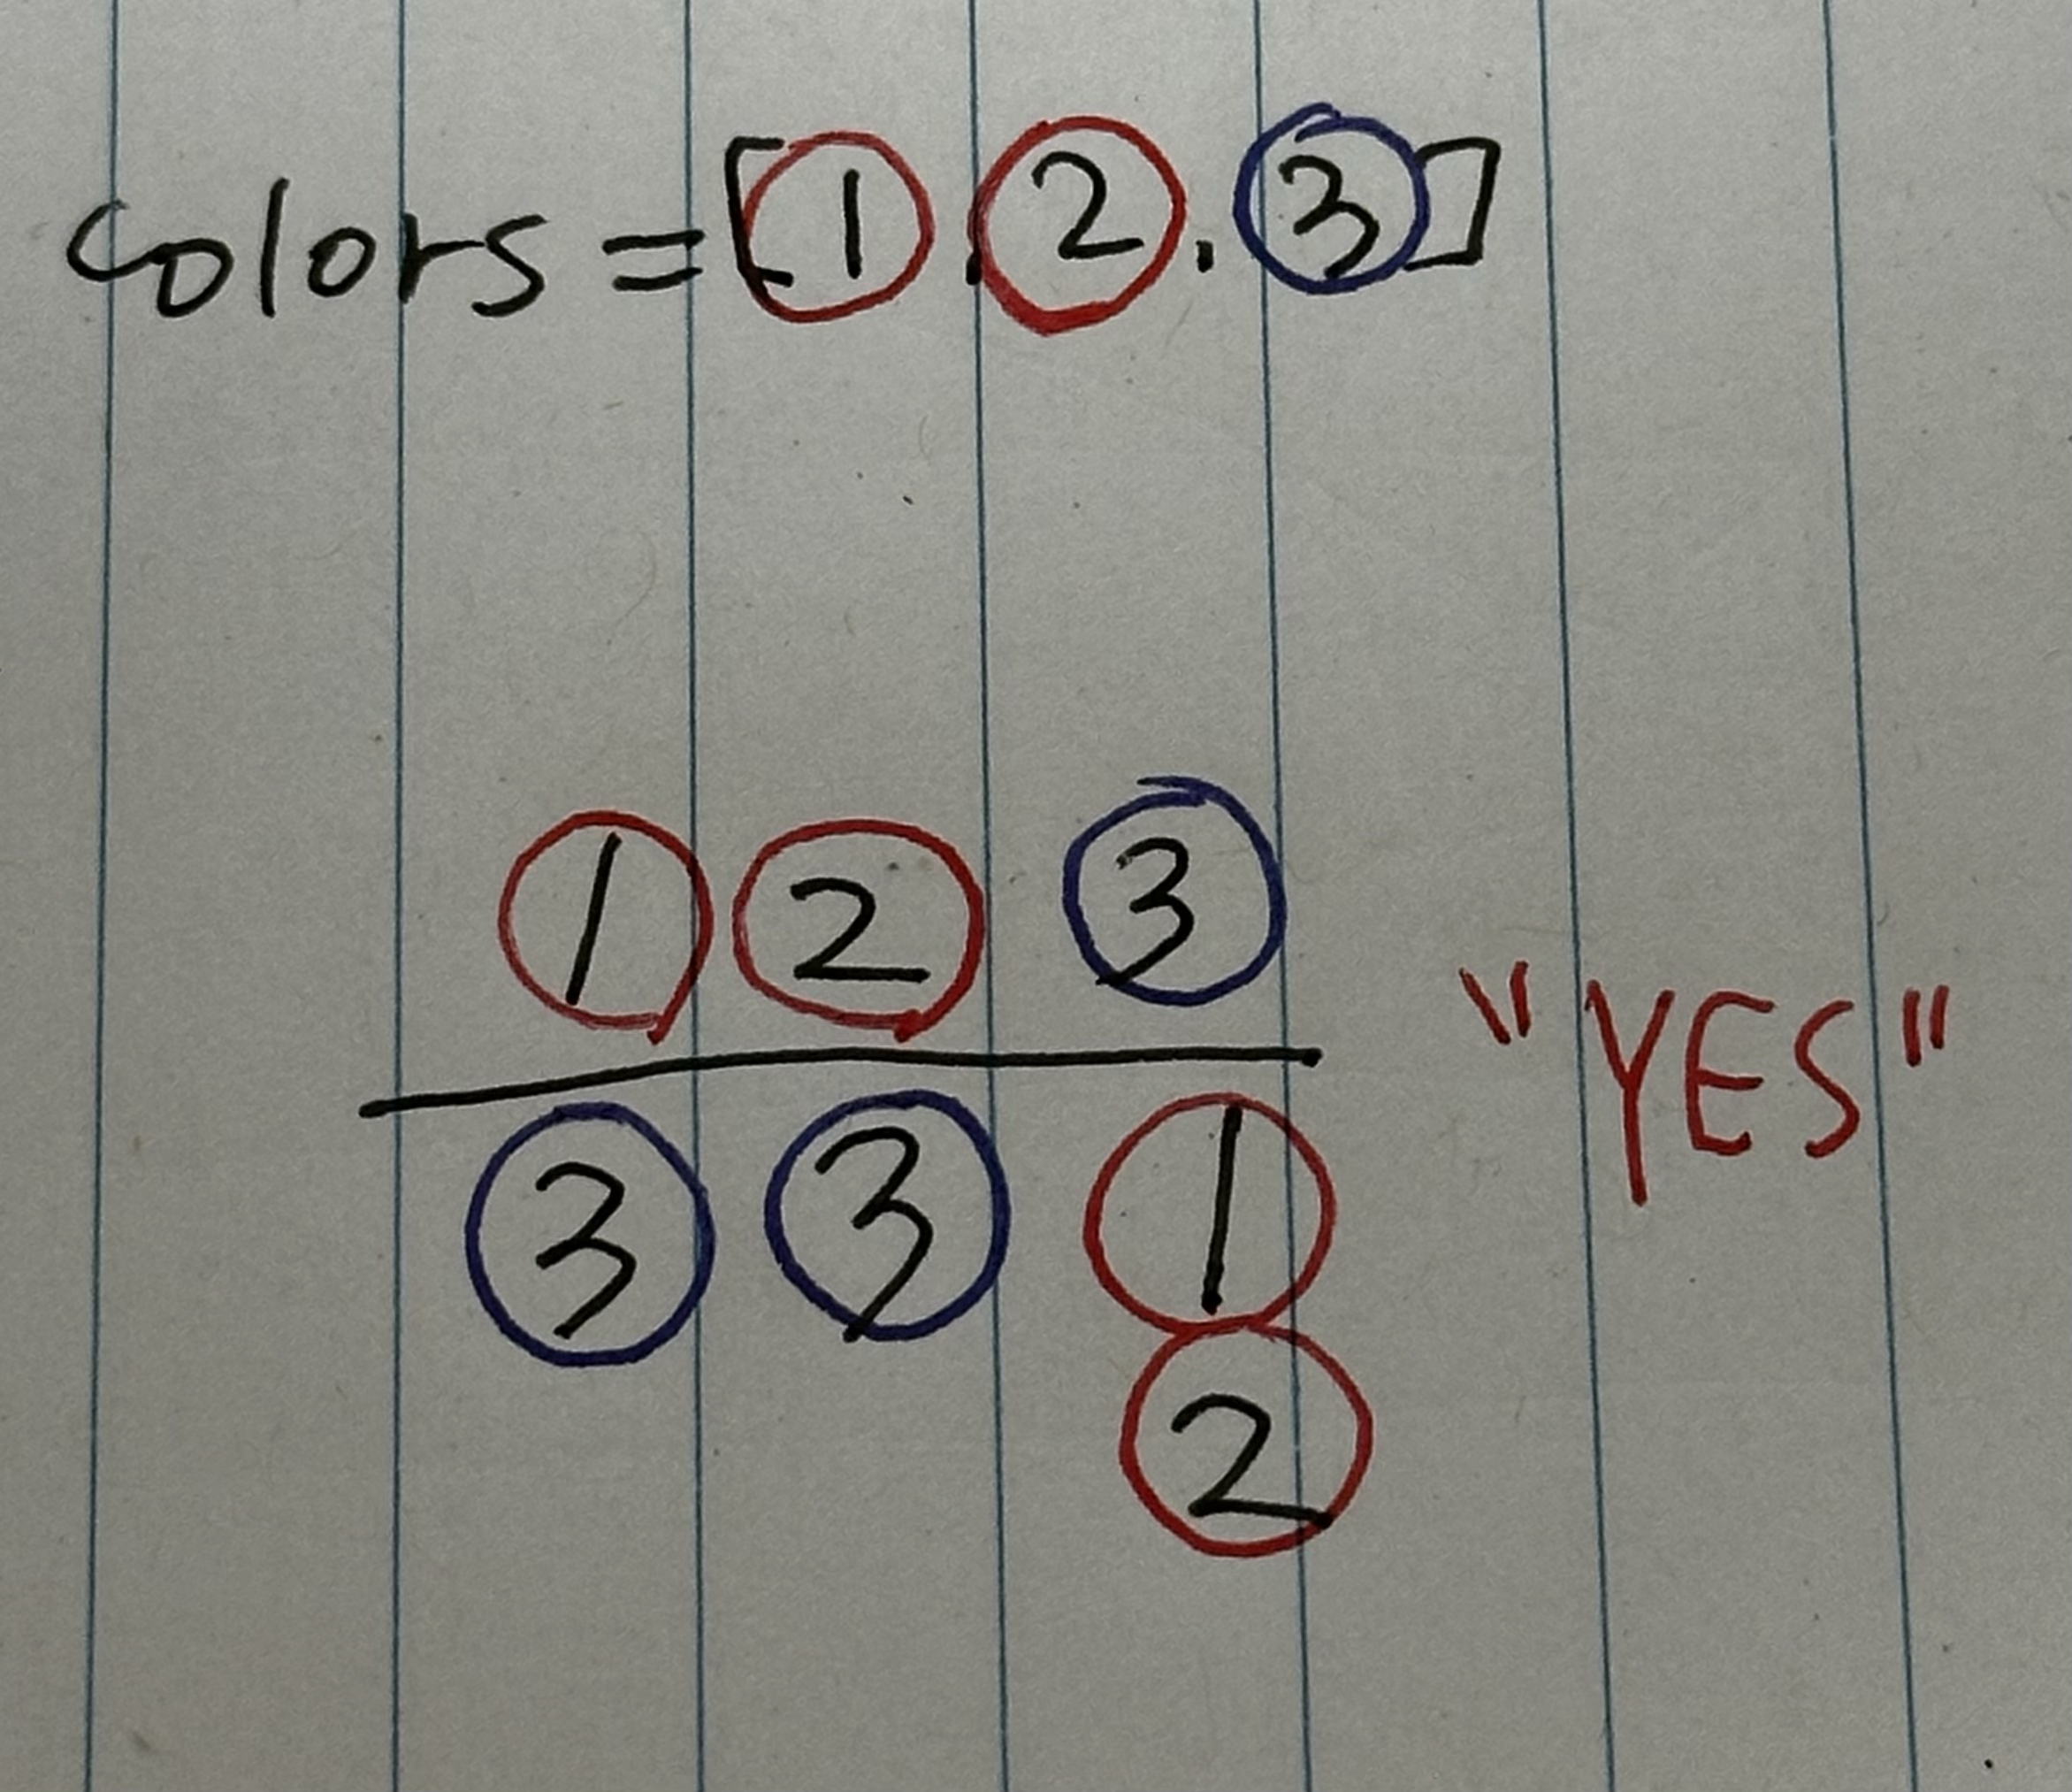 colors = [1, 2, 3]
1 2 3
"YES"
3 3 1
2